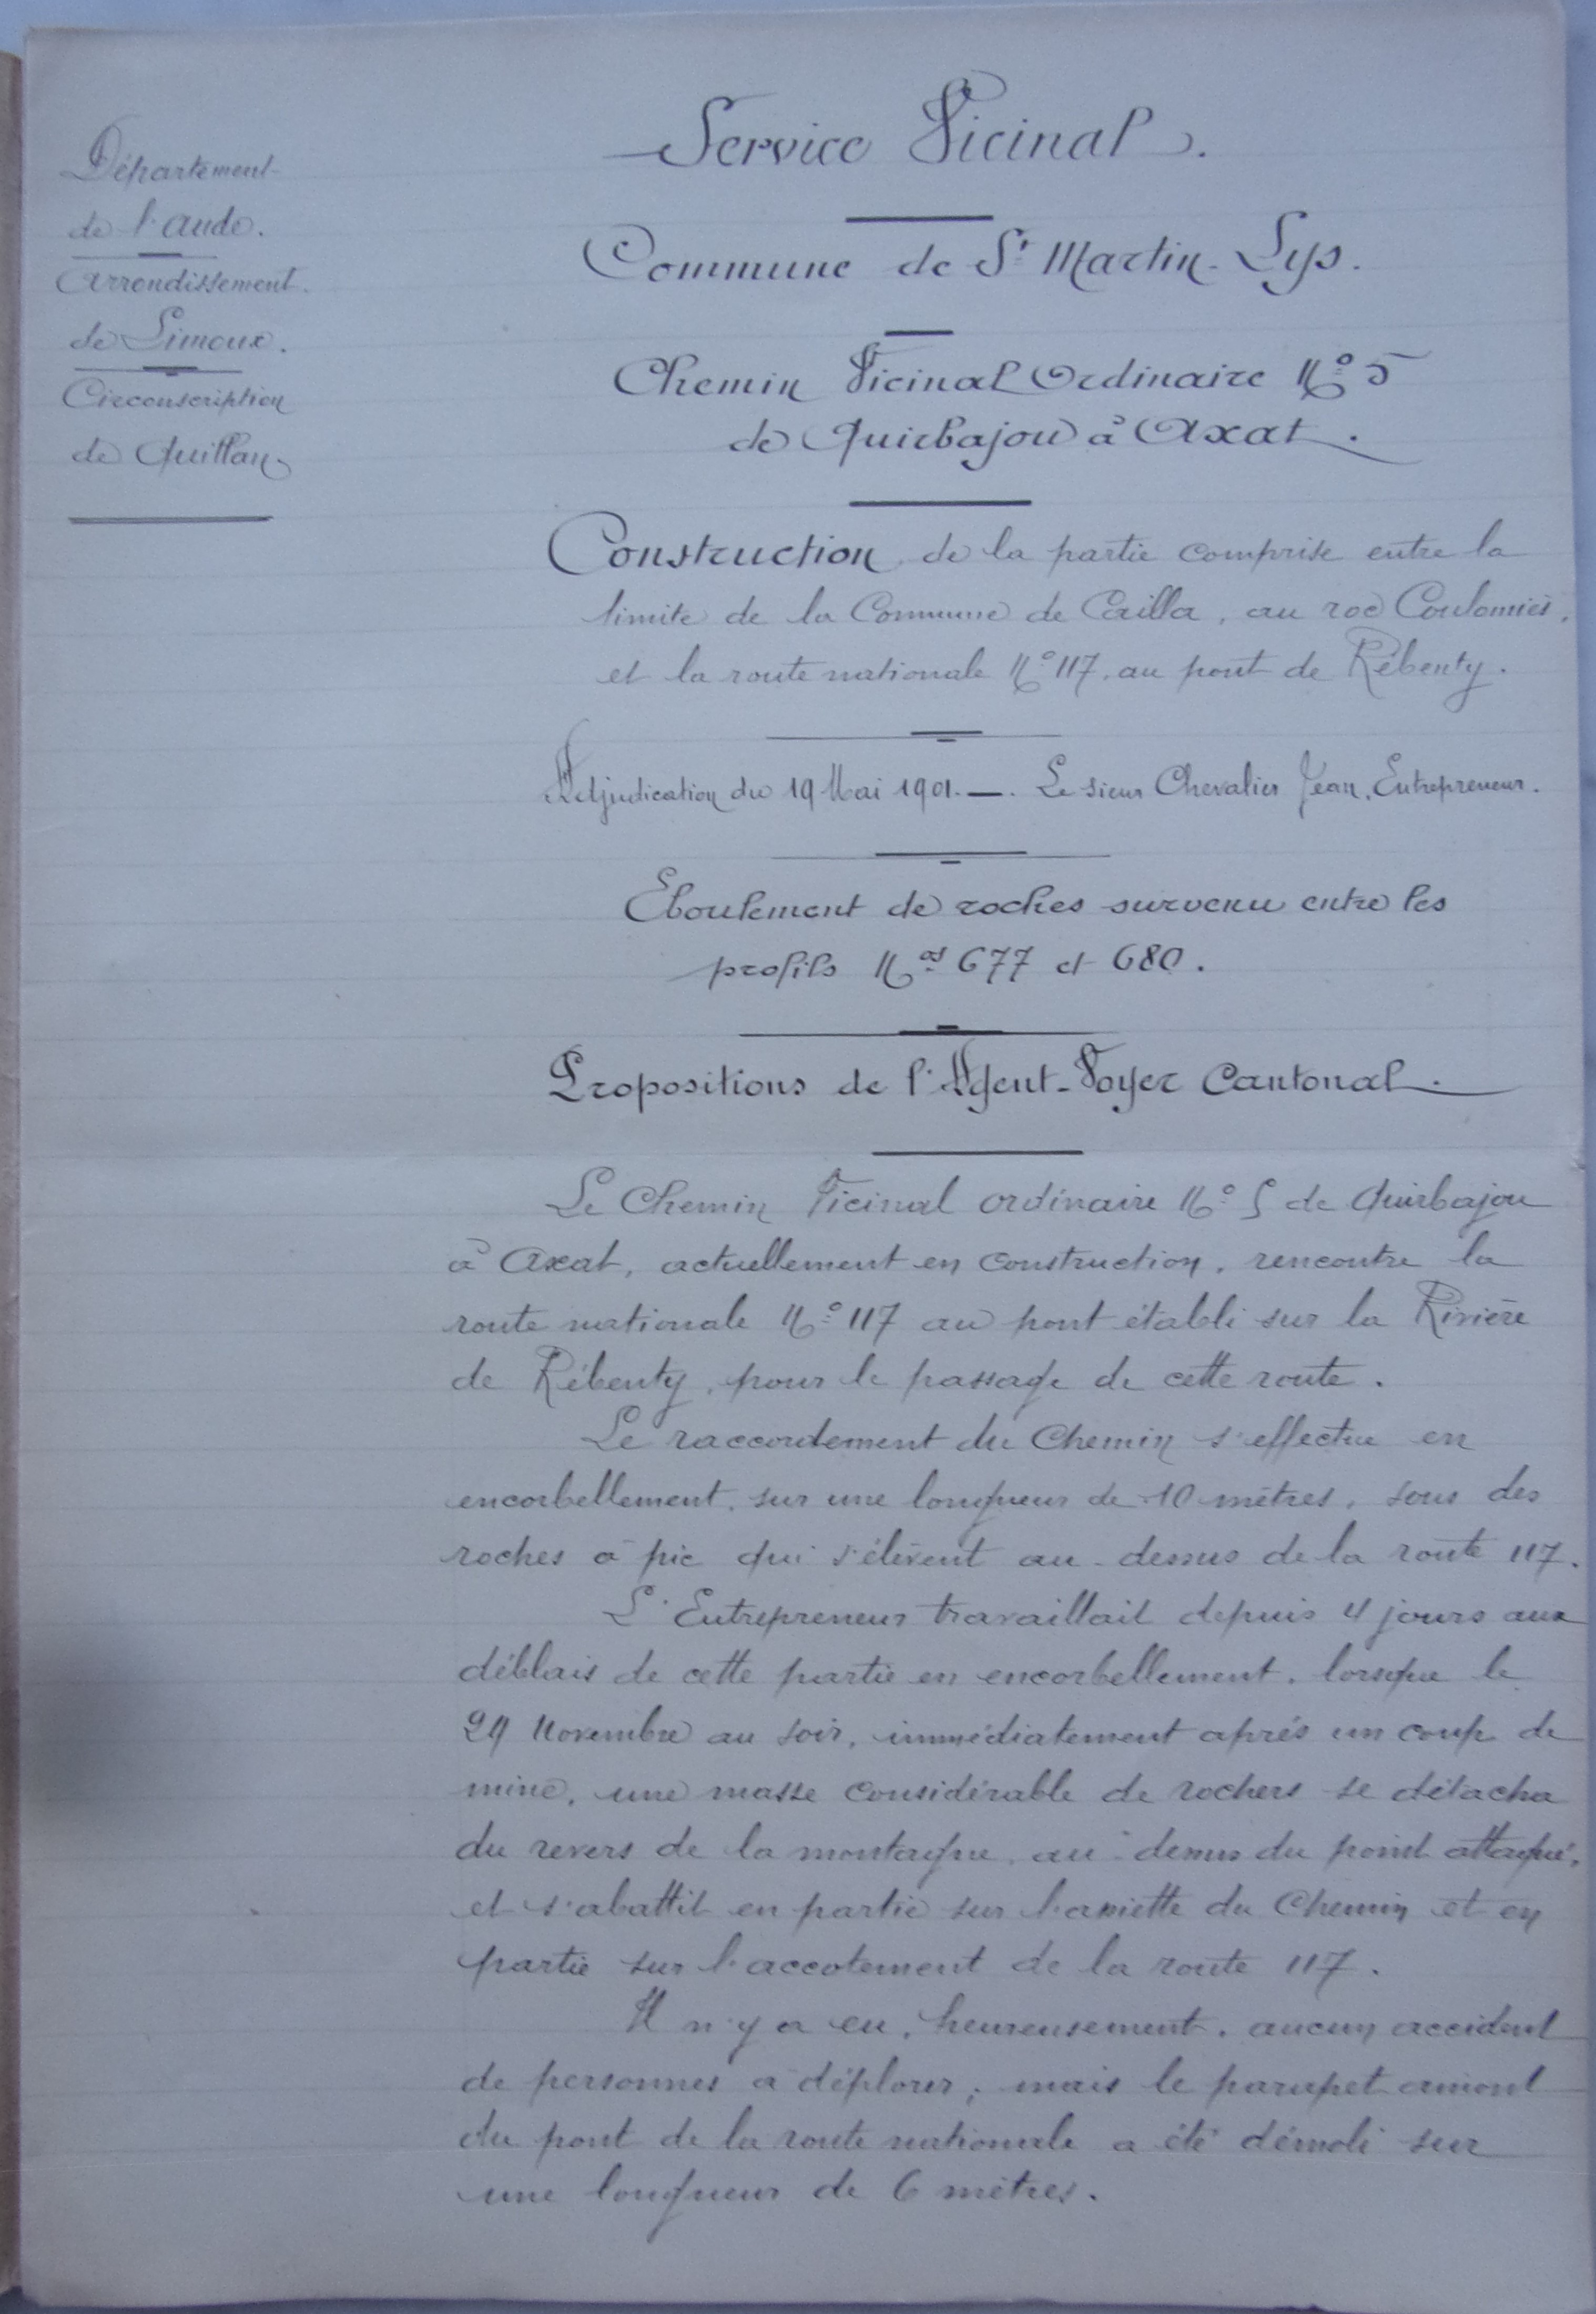 Département
de l'Aude.
Arrondissement.
de Limoux.
Circonscription
de Quillan
Service Vicinal.
Commune de St Martin-Lys.
Chemin Vicinal Ordinaire No 5
de Quirbajou à Axat.
Construction de la partie comprise entre la
limite de la Commune de Cailla, au roc Coulomiés,
et la route nationale No 117, au pont de Rébenty.
Adjudication du 19 Mai 1901. — . Le sieur Chevalier Jean, Entrepreneur.
Eboulement de roches survenu entre les
profils Nos 677 et 680.
Propositions de l'Agent-Voyer Cantonal.
Le Chemin Vicinal ordinaire No 5 de Quirbajou
à Axat, actuellement en construction, rencontre la
route nationale No 117 au pont établi sur la Rivière
de Rébenty, pour le passage de cette route.
Le raccordement du Chemin s'effectue en
encorbellement, sur une longueur de 10 mètres, sous des
roches à pic qui s'élèvent au-dessus de la route 117.
L'Entrepreneur travaillait depuis 4 jours aux
déblais de cette partie en encorbellement, lorsque le
29 Novembre au soir, immédiatement après un coup de
mine, une masse considérable de rochers se détacha
du revers de la montagne, au-dessus du point attaqué,
et s'abattit en partie sur l'assiette du Chemin et en
partie sur l'accotement de la route 117.
Il n'y a eu, heureusement, aucun accident
de personnes à déplorer; mais le parapet amont
du pont de la route nationale a été démoli sur
une longueur de 6 mètres.